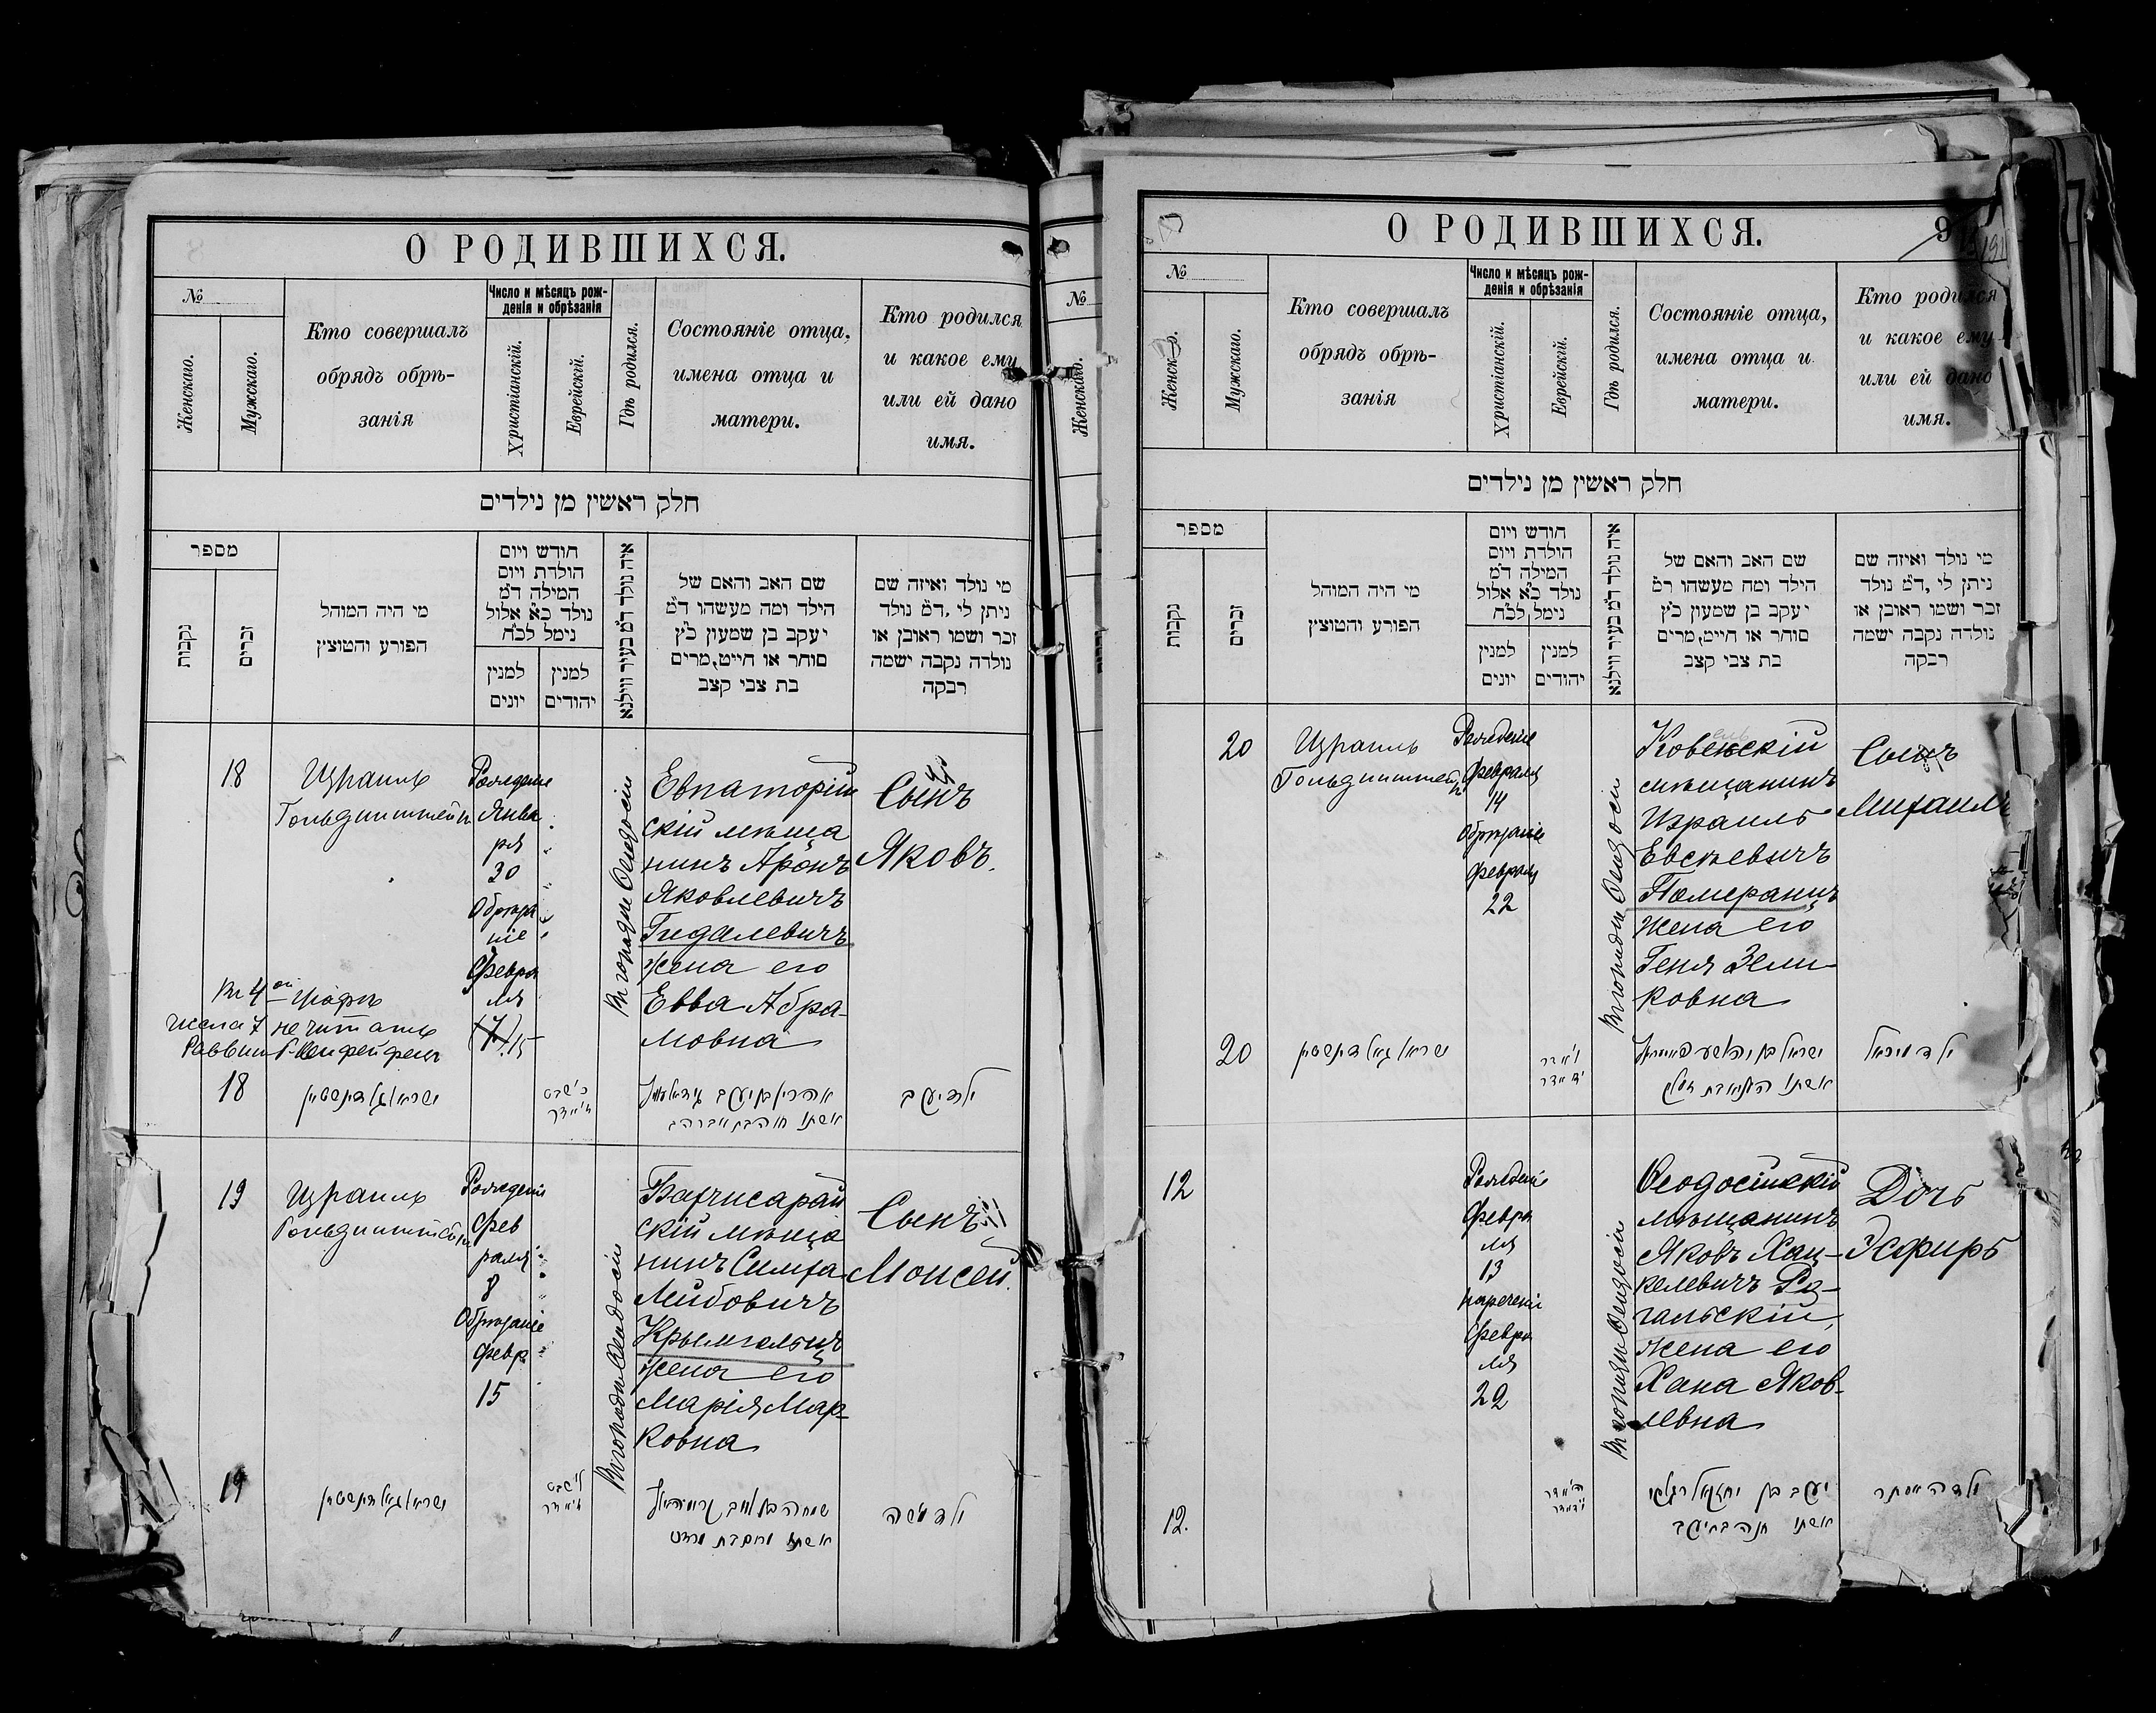 О РОДИВШИХСЯ.
№
Женскаго.
Мужскаго.
Кто совершалъ
обрядъ обрѣ-
занія
Число и мѣсяцъ рож-
денія и обрѣзанія
Христіанскій.
Еврейскій.
Гдѣ родился.
Состояніе отца,
имена отца и
матери.
Кто родился
и какое ему
или ей дано
имя.
חלק ראשין מן נילדים
מספר
נקבות
זכרים
מי היה המוהל
הפורע והמוצץ
חודש ויום
הולדת ויום
המילה ד״מ
נולד כ״א אלול
נימל לכ״ח
למנין
יונים
למנין
יהודים
איה נולד ד״מ בעיר ווילנא
שם האב והאם של
הילד ומה מעשהו ד״מ
יעקב בן שמעון כ״ץ
סוחר או חייט, מרים
בת צבי קצב
מי נולד ואיזה שם
ניתן לי, ד״מ נולד
זכר ושמו ראובן או
נולדה נקבה ישמה
רבקה
18
Израиль
Гольдинштейн
Рождение
Янва
ря
30
Обрѣза
ніе
Февра
ля
(7) 15
Въ городѣ Ѳеодосіи
Евпаторій
скій мѣща
нинъ Аронъ
Яковлевичъ
Гидалевичъ
жена его
Евва Абра-
мовна
Сынъ
Яковъ.
Въ 4ой графѣ
числа 7 не читать
Раввин
18
ישראל גאלדינשטיין
כ׳ שבט
אהרין בן יעקב
אשתו חוה בת אברהם
ילד יעקב
19
Израиль
Гольдинштейн
Рожденіе
Фев
раля
8
Обрѣзаніе
Февр
15
Въ городѣ Ѳеодосіи
Бахчисарай
скій мѣща
нинъ Симха
Лейбовичъ
Крымгольцъ
жена его
Марія Мар-
ковна
Сынъ
Моисей.
19
ישראל גאלדינשטיין
שמחה בן לייב
אשתו מרים בת מרדכי
ילד משה
О РОДИВШИХСЯ.
9
№
Женск
Мужскаго.
Кто совершалъ
обрядъ обрѣ-
занія
Число и мѣсяцъ рож-
денія и обрѣзанія
Христіанскій.
Еврейскій.
Гдѣ родился.
Состояніе отца,
имена отца и
матери.
Кто родился
и какое ему
или ей дано
имя.
חלק ראשין מן נילדים
מספר
נקבות
זכרים
מי היה המוהל
הפורע והמוצץ
חודש ויום
הולדת ויום
המילה ד״מ
נולד כ״א אלול
נימל לכ״ח
למנין
יונים
למנין
יהודים
איה נולד ד״מ בעיר ווילנא
שם האב והאם של
הילד ומה מעשהו ד״מ
יעקב בן שמעון כ״ץ
סוחר או חייט, מרים
בת צבי קצב
מי נולד ואיזה שם
ניתן לי, ד״מ נולד
זכר ושמו ראובן או
נולדה נקבה ישמה
רבקה
20
Израиль
Гольдинштейн
Рожденіе
Февраля
14
Обрѣзаніе
Февраля
22
Въ городѣ Ѳеодосіи
Ковенскій
мѣщанинъ
Израиль
Евсѣевичъ
Померанцъ
жена его
Геня Зели-
ковна
Сынъ
Михаилъ
20
ישראל גאלדינשטיין
ילד מיכאל
12
Рожденіе
Февра
ля
13
нареченіе
Февра
ля
22
Въ городѣ Ѳеодосіи
Ѳеодосійскій
мѣщанинъ
Яковъ Хац-
келевичъ Ра-
гальскій,
жена его
Хана Яков-
левна
Дочь
Эсфирь
12.
יעקב בן יחזקאל
אשתו חנה בת יעקב
ילדה אסתר